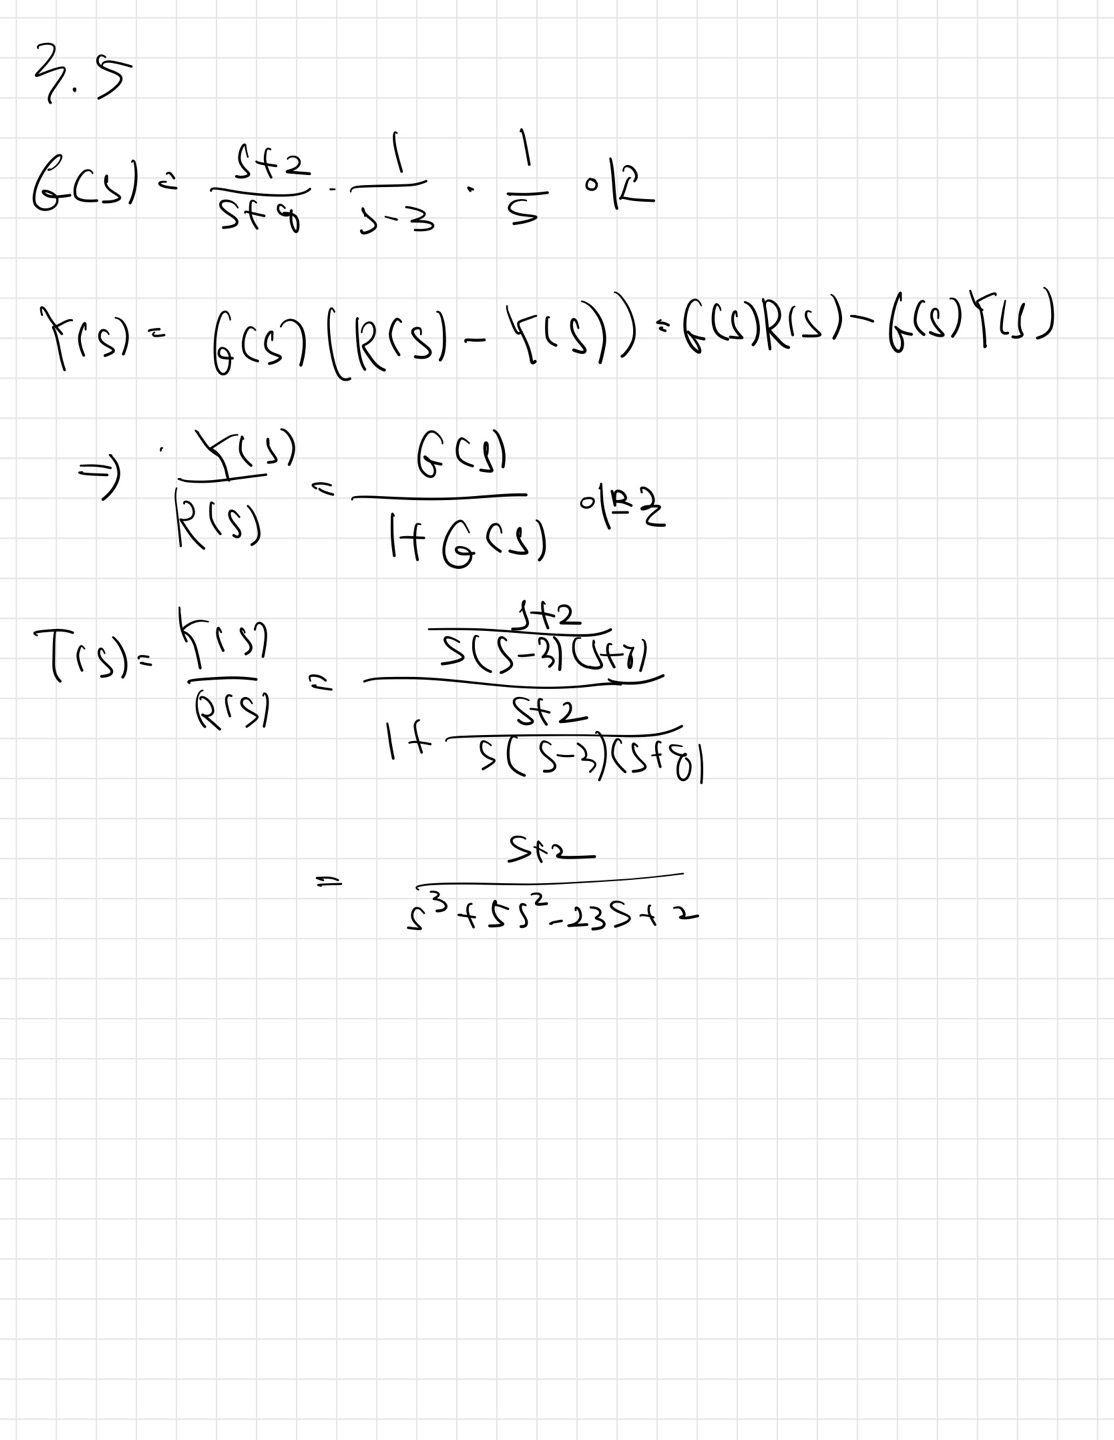 3.5
G(s) = \frac{s+2}{s+8} \cdot \frac{1}{s-3} \cdot \frac{1}{s} 이고
Y(s) = G(s)(R(s) - Y(s)) = G(s)R(s) - G(s)Y(s)
⇒ \frac{Y(s)}{R(s)} = \frac{G(s)}{1+G(s)} 이므로
T(s) = \frac{Y(s)}{R(s)} = \frac{\frac{s+2}{s(s-3)(s+8)}}{1+\frac{s+2}{s(s-3)(s+8)}}
= \frac{s+2}{s^3+5s^2-23s+2}